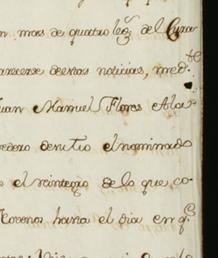 n mas de quatro leg.s del Cura
parecerse de estas noticias, med.te
Juan Manuel Flores Alca
redero dentro el nominado
e el reintegro de lo que, co-
Corona hasta el dia en q.e